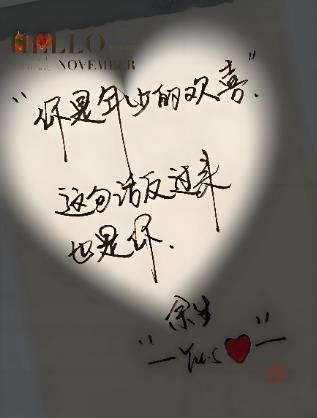 HELLO
NOVEMBER
"你是年少的欢喜".
这句话反过来
也是你.
余生